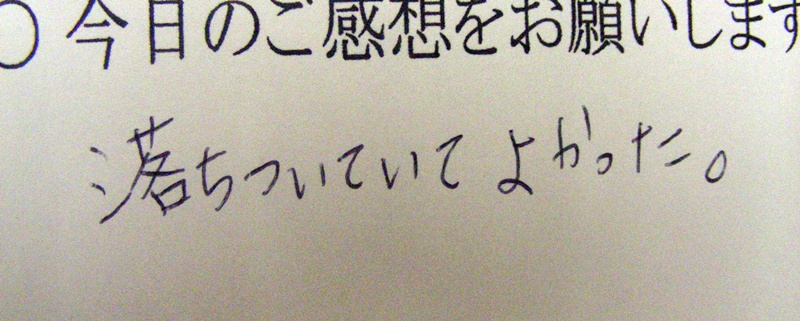 ○今日のご感想をお願いします
落ちついていてよかった。